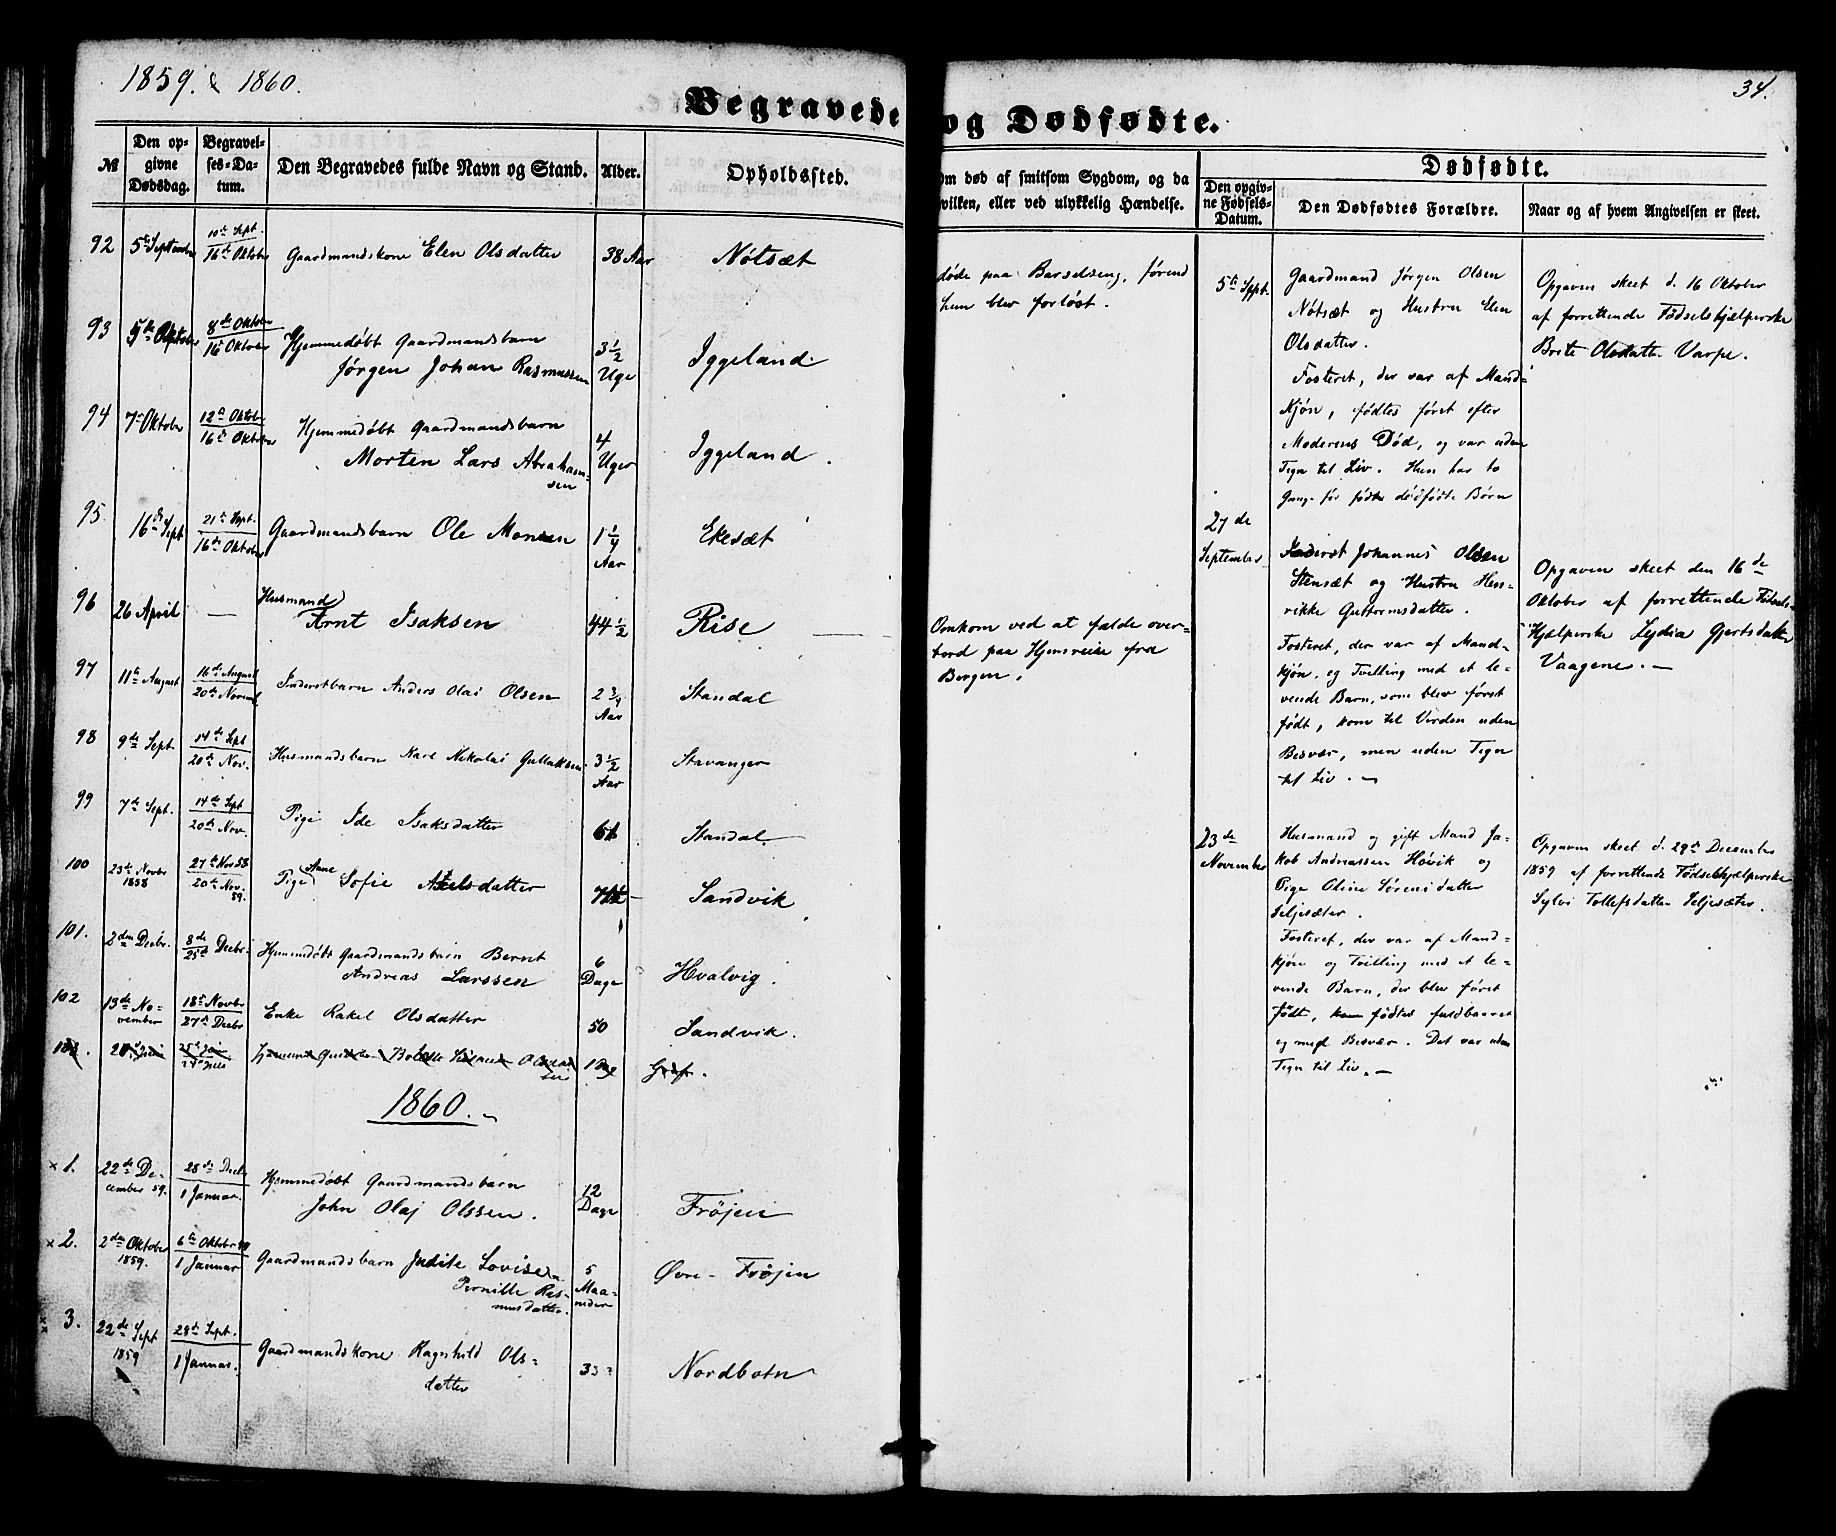 1859. & 1860.
34.
Begravede og Dødfødte.
№
Den opgivne Dødsdag.
Begravelses-Datum.
Den Begravedes fulde Navn og Stand.
Alder.
Opholdssted.
Om død af smitsom Sygdom, og da
hvilken, eller ved ulykkelig Hændelse.
Dødfødte.
Den opgivne Fødsels-Datum.
Den Dødfødtes Forældre.
Naar og af hvem Angivelsen er skeet.
92 5te September 10de Sept. 16de Oktober Gaardmandskone Elen Olsdatter 38 Aar Nötsæt
døde paa Barselseng, førend
hun blev forløst.
93 5te Oktober 8de Oktober 16de Oktober Hjemmedöbt Gaardmandsbarn
Jørgen Johan Rasmussen 3 1/2 Uge Iggeland.
94 7de Oktober 12te Oktober 16de Oktober Hjemmedöbt Gaardmandsbarn
Morten Lars Abraham-
sen 4 Uger Iggeland.
95. 16de Sept 21de Sept. 16de Oktober Gaardmandsbarn Ole Monsen 1 1/4 Aar Ekesæt
96 26 April — Husmand
Arnt Isaksen 44 1/2 Rise —
Omkom ved at falde over-
bord paa Hjemreise fra
Bergen.
97 11te August 16de August 20de Novemb. Inderstbarn Anders Olai Olsen 2 3/4 Aar Standal
98 9de Sept 14de Sept 20de Nov. Husmandsbarn Karl Nikolai Gullaksen 3 1/2 Aar Stavanger
99 7de Sept. 14de Sept 20de Nov. Pige Ide Isaksdatter Standal.
100 23de Novbr 1858 27de Nov 58 20de Nov. 59. Pige Sofie Axelsdatter Sandvik
101. 2den Decbr. 8de 25de Decbr. Hjemmedöbt Gaardmandsbarn Bernt
Andreas Larssen 6 Dage Hvalvig.
102 13de No-
vember 18de Novbr 27de Decbr Enke Rakel Olsdatter 50 Sandvik.
1860.
x 1. 22de De-
cember 59. 28de Decbr 1 Januar. Hjemmedöbt Gaardmandsbarn
John Olaj Olssen. 12 Dage Fröjen
x 2. 2den Oktober 1859. 6te Oktober 59 1 Januar Gaardmandsbarn Judite Lovise
Pernille Ras-
musdatter. 5 Maa-
neder Øvre-Fröjen
3. 22de Sept 1859 28de Sept. 1 Januar. Gaardmandskone Ragnhild Ols-
datter Nordbotn
5te Sept.
Gaardmand Jørgen Olsen
Nötsæt og Hustru Elen
Olsdatter.
Fosteret, der var af Mand-
Kjön, födtes först efter
Moderens Död, og var uden
Tegn til Liv. Hun har to
Gange før födte dödfödte Börn
Opgaven skeet d. 16 Oktober
af forrettende Födselshjælperske
Brite Olsdatter Varpe.
27de
September
Inderst Johannes Olsen
Stensæt og Hustru Hen-
rikke Guttormsdatter.
Fosteret, der var af Mand-
kjön, og Tvilling med et le-
vende Barn, som blev först
födt, kom til Verden uden
Besvær, men uden Tegn
til Liv. —
Opgaven skeet den 16de
Oktober af forrettende Födsels-
Hjælperske Lydia Gjertsdatter
Vaagene. —
23de
November
Husmand og gift Mand Ja-
kob Andreassen Hövik og
Pige Oline Sörensdatter
Seljesæter.
Fosteret, der var af Mand-
kjön og Tvilling med et le-
vende Barn, der blev först
födt, födtes fuldbaaret
og med Besvær. Det var uden
Tegn til Liv. —
Opgaven skeet d. 29de December
1859 af forrettende Födselshjælperske
Sylvi Tollefsdatter Seljesæter.